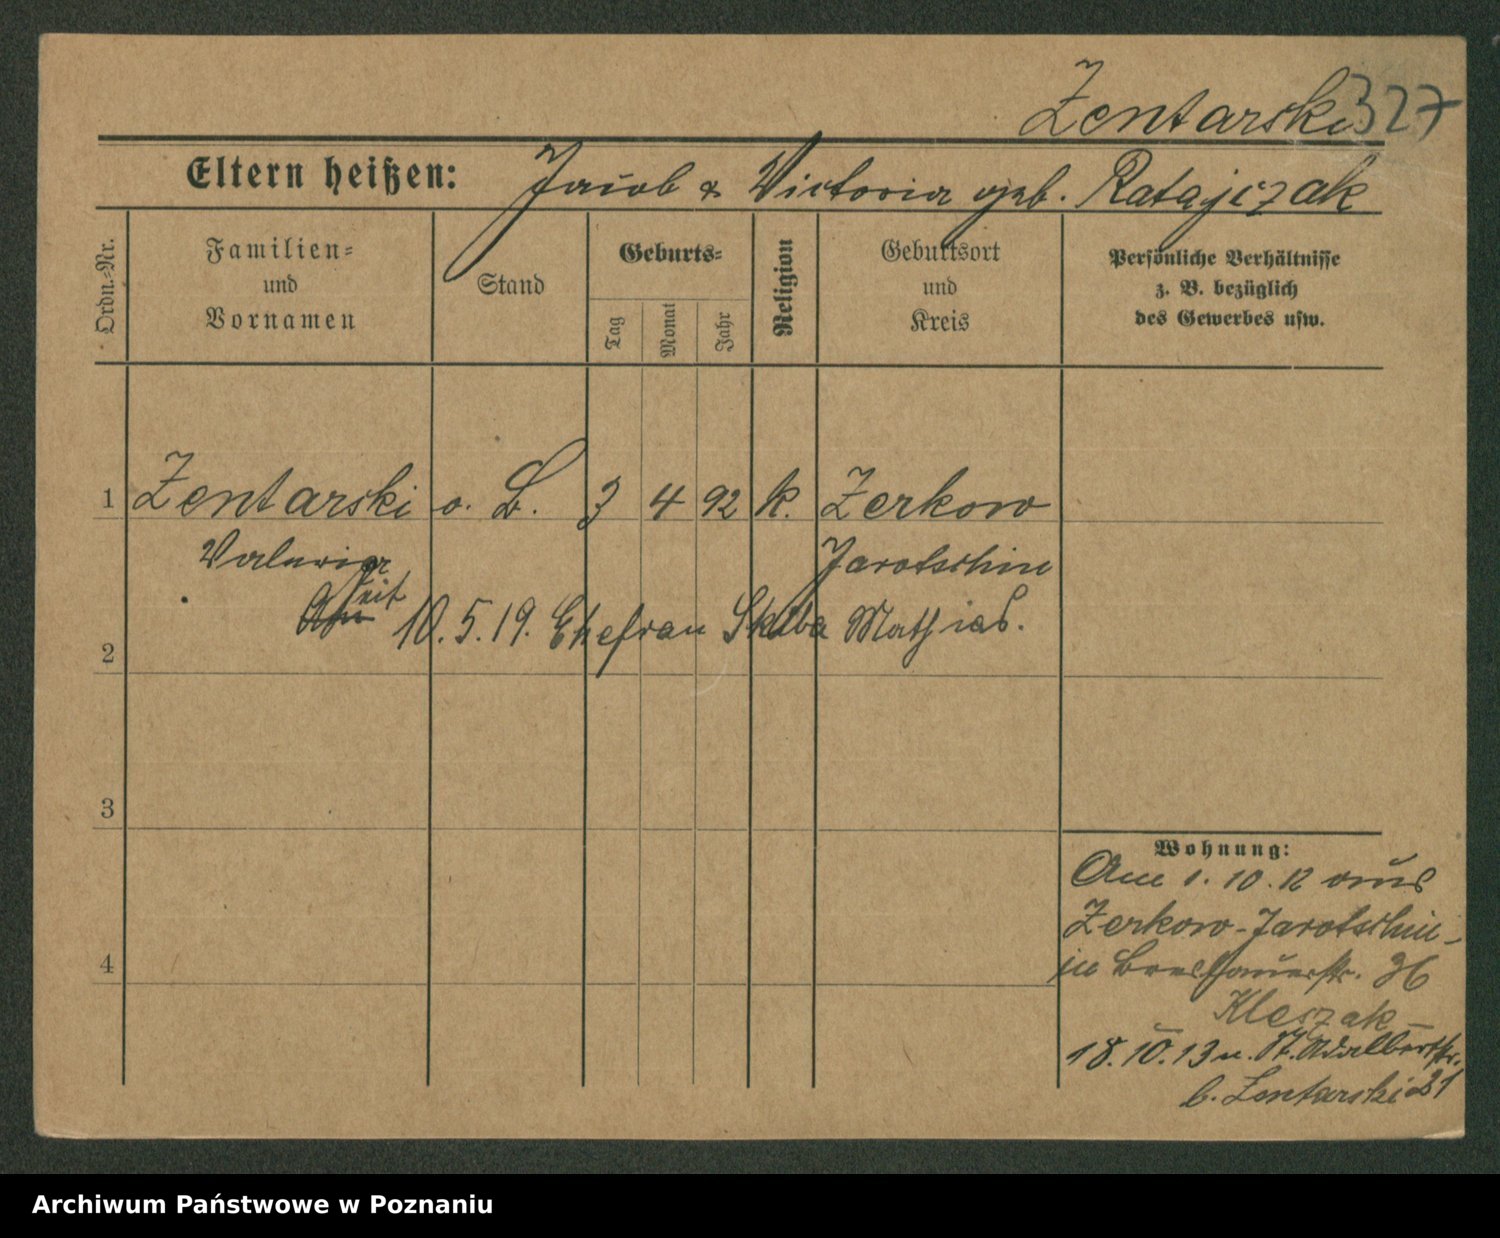 Zentarski 327
Eltern heißen: Jacob & Victoria geb. Ratajczak
Ordn.-Nr.
Familien-
und
Vornamen
Stand
Geburts-
Tag
Monat
Jahr
Religion
Geburtsort
und
Kreis
Persönliche Verhältnisse
z. B. bezüglich
des Gewerbes usw.
1 Zentarski o. B. 3 4 92 k. Zerkow
Valeria Jarotschin
seit
10.5.19. Ehefrau Skiba Mathias.
2
3
4
Wohnung:
Am 1.10.12 aus
Zerkow-Jarotschin-
in Breslauerstr. 36
Kleszak
18.10.13 n. St. Adalbertstr.
b. Zentarski 21
Archiwum Państwowe w Poznaniu